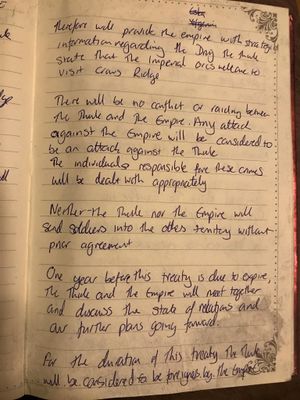 therefore will provide the empire with strategic
information regarding the Druj. The Thule
state that the Imperial orcs welcome to
visit Crows Ridge
There will be no conflict or raiding between
the Thule and the Empire. Any attack
against the Empire will be considered to
be an attack against the Thule
The individuals responsible for these crimes
will be dealt with appropriately
Neither the Thule nor the Empire will
send soldiers into the others territory without
prior agreement
One year before this treaty is due to expire,
the Thule and the Empire will meet together
and discuss the state of relations and
our further plans going forward.
For the duration of this treaty the Thule
will be considered to be foreigners by the Empire